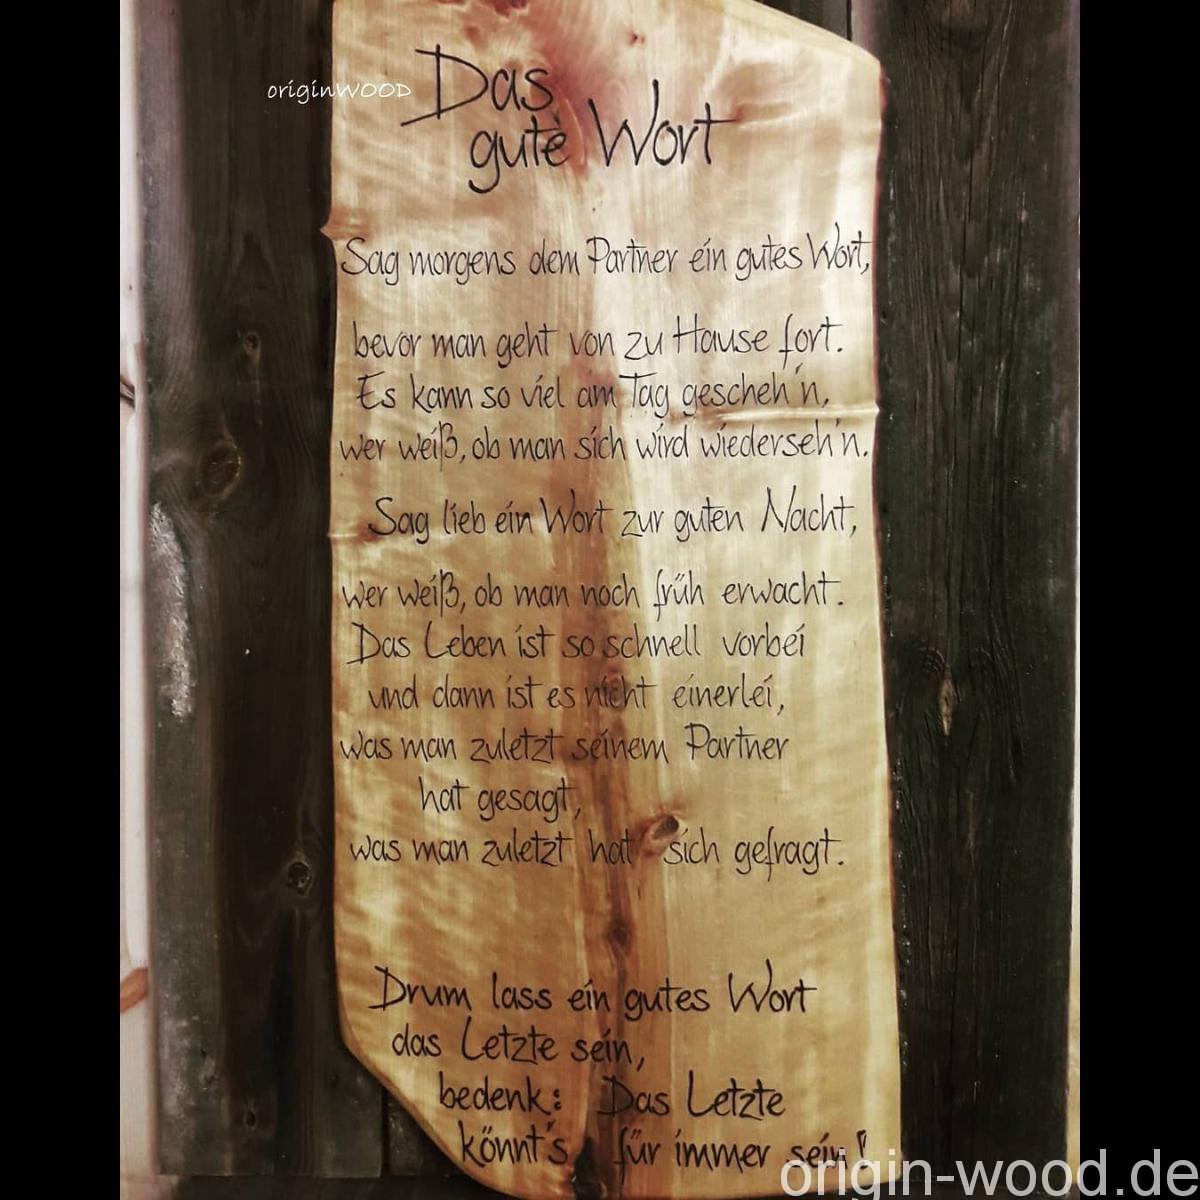 originWOOD
Das
gute Wort
Sag morgens dem Partner ein gutes Wort,
bevor man geht von zu Hause fort.
Es kann so viel am Tag gescheh'n,
wer weiß, ob man sich wird wiederseh'n.
Sag lieb ein Wort zur guten Nacht,
wer weiß, ob man noch früh erwacht.
Das Leben ist so schnell vorbei
und dann ist es nicht einerlei,
was man zuletzt seinem Partner
hat gesagt,
was man zuletzt hat sich gefragt.
Drum lass ein gutes Wort
das Letzte sein,
bedenk: Das Letzte
könnt's für immer sein!
origin-wood.de